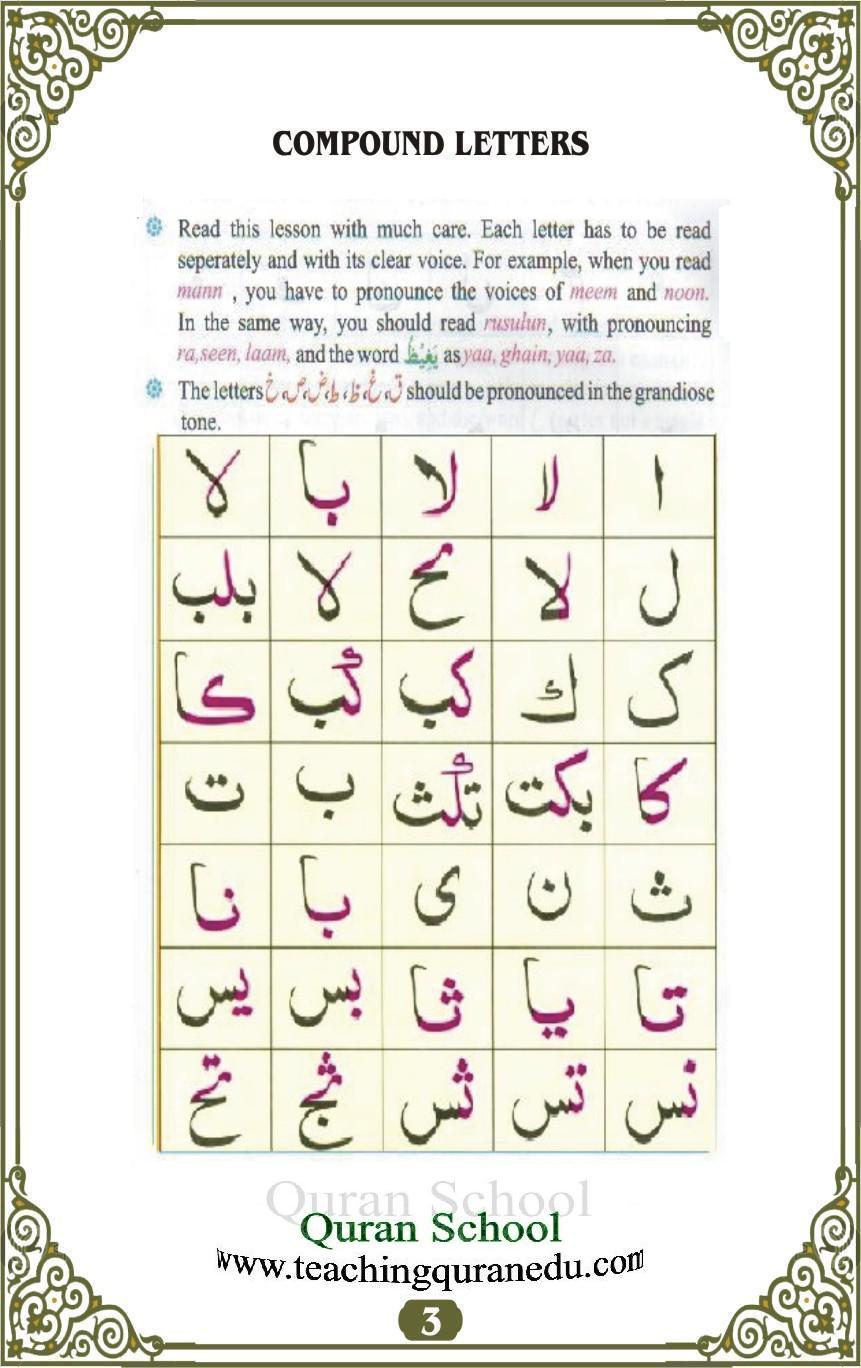 COMPOUND LETTERS
Read this lesson with much care. Each letter has to be read
seperately and with its clear voice. For example, when you read
mann , you have to pronounce the voices of meem and noon.
In the same way, you should read rusulun, with pronouncing
ra,seen, laam, and the word يَغِيْظُ as yaa, ghain, yaa, za.
The letters خ، ص، ض، ط، ظ، غ، ق should be pronounced in the grandiose
tone.
ا لا لا با لا
ل لا لا بلب
ک ك کب كب کا
کا بکت تكث ب ت
ث ن ی با نا
تا یا ثا بس یس
نس تس ثس ثج تح
Quran School
Quran School
www.teachingquranedu.com
3